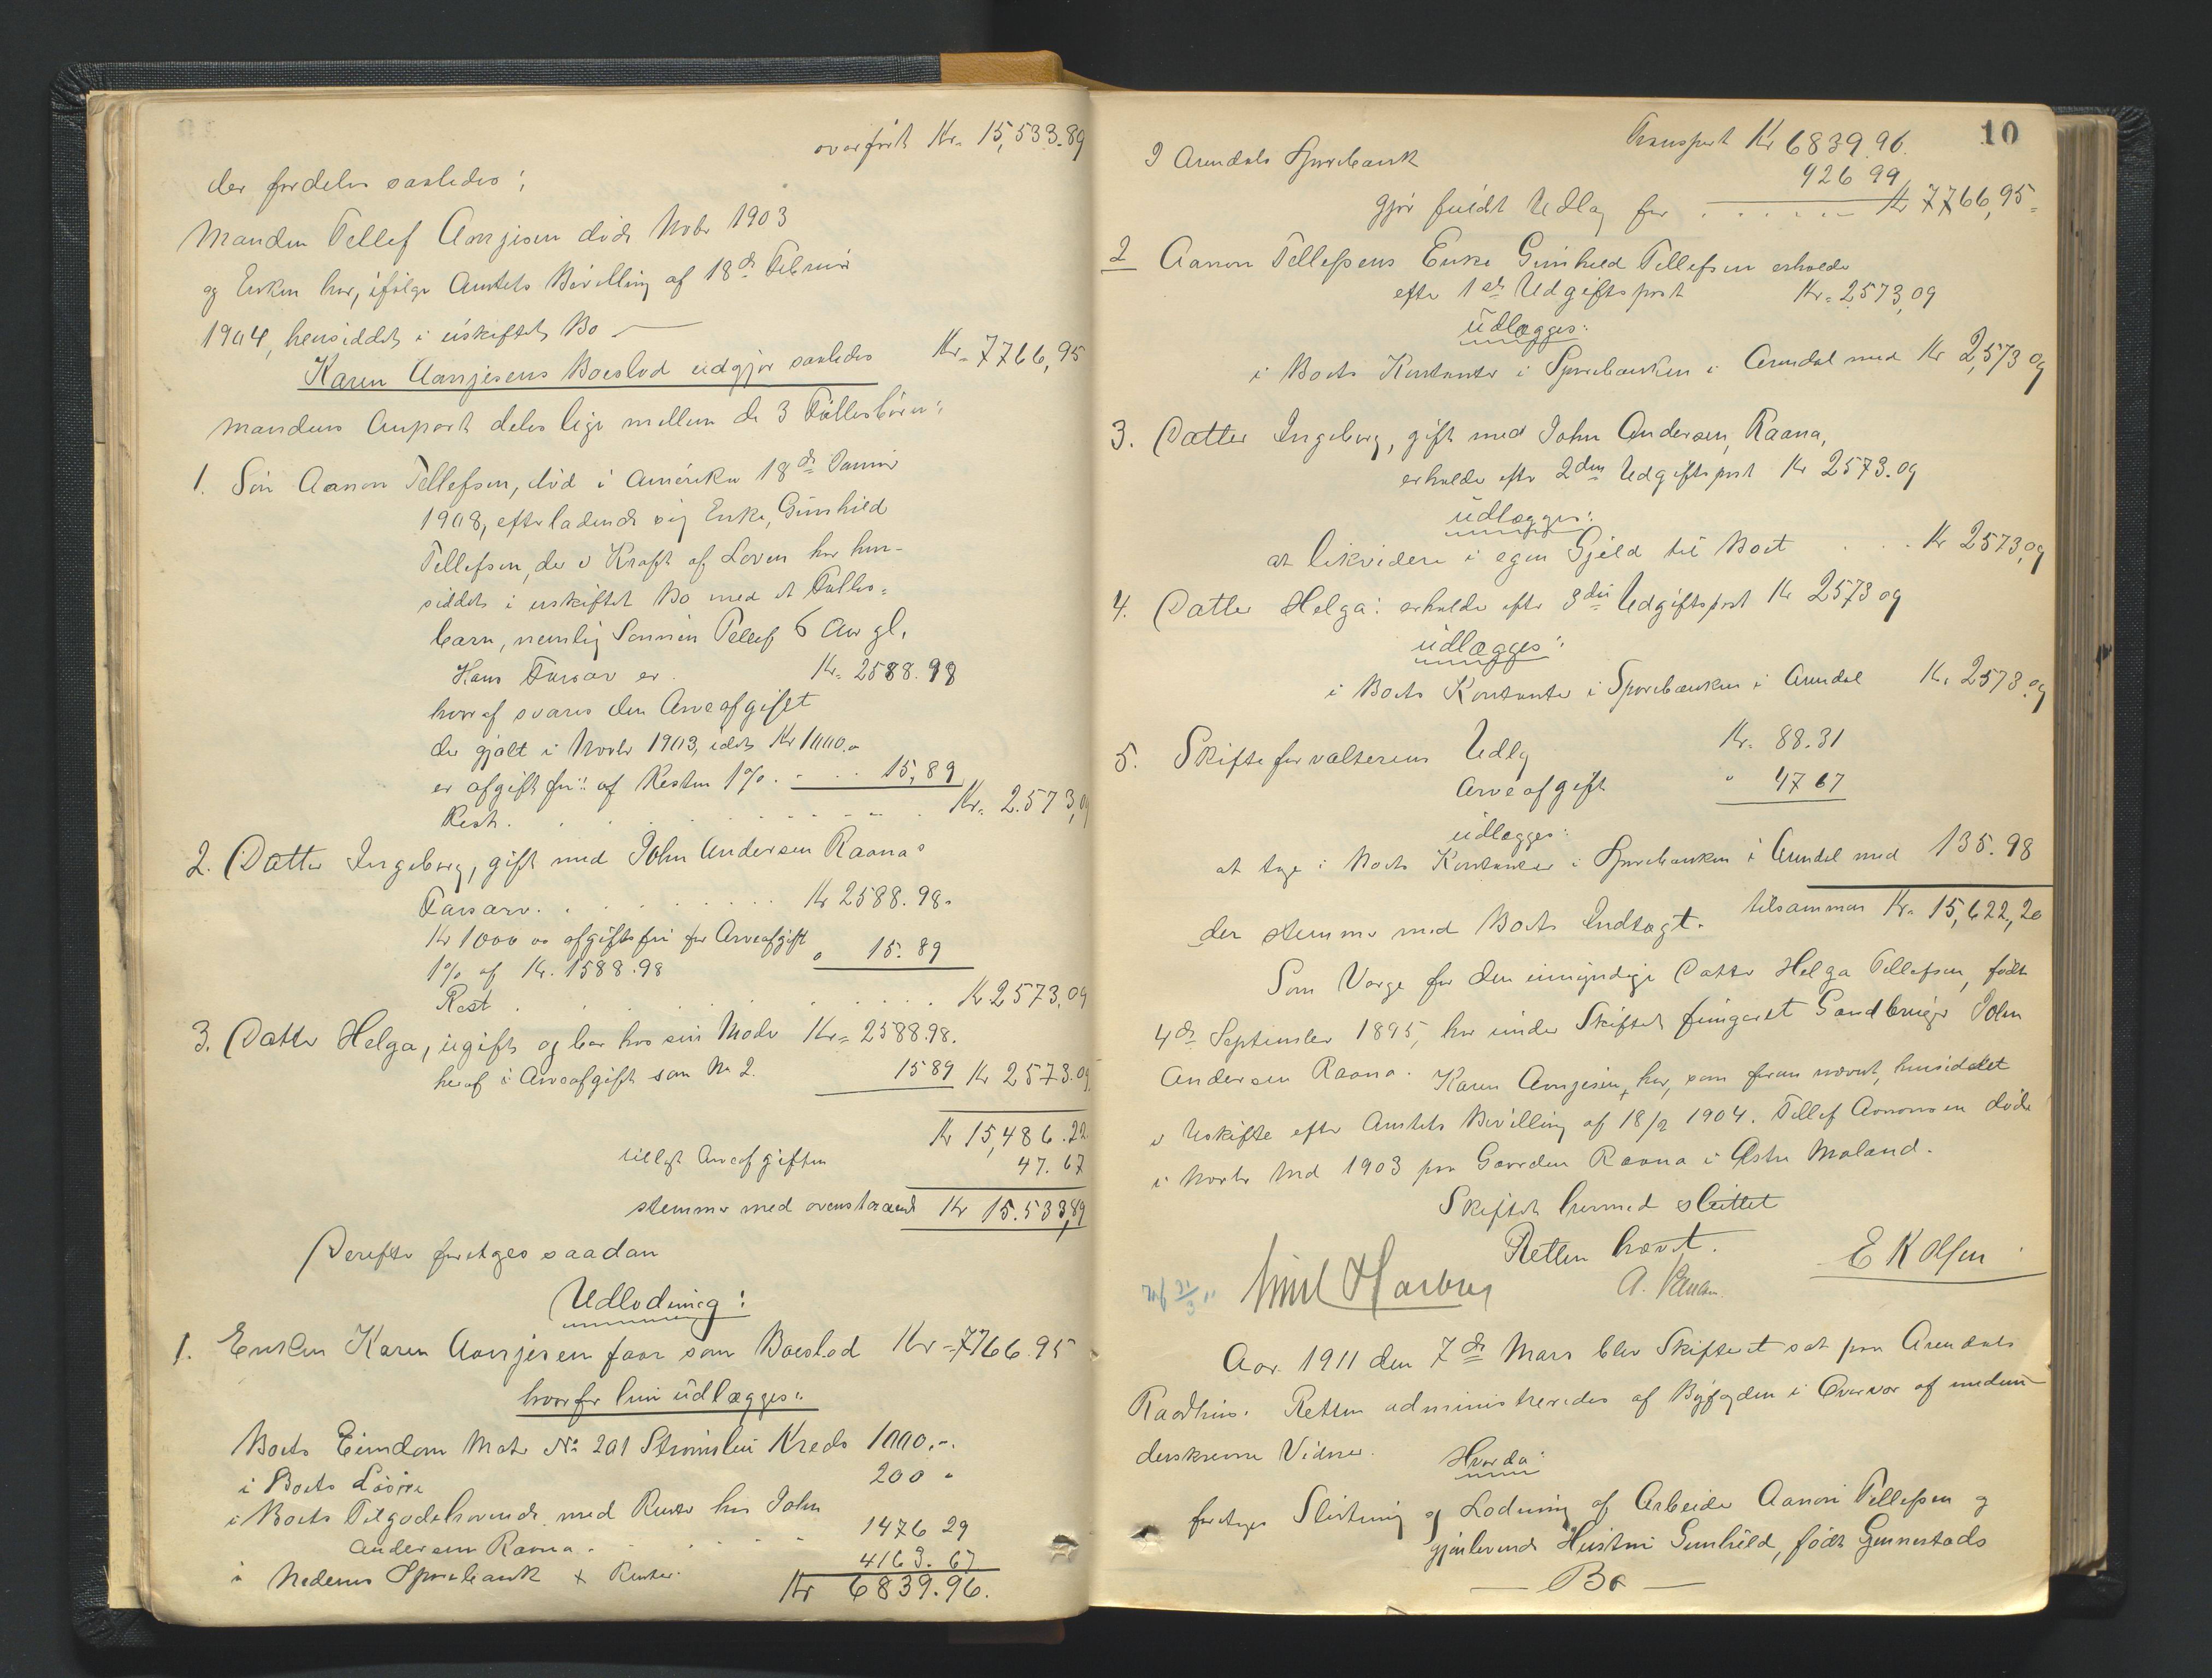 overført Kr. 15,533.89
der fordeles saaledes:
Manden Tellef Aanjesen døde Novbr 1903
og Enken har, ifølge Amtets Bevilling af 18de Februar
1904, hensiddet i uskiftet Bo
Karen Aanjesens Boeslod udgjør saaledes Kr. 7766,95
Mandens Anpart deles lige mellem de 3 Fællesbørn:
1. Søn Aanon Tellefsen, død i Amerika 18de Januar
1908, efterladende sig Enke, Gunhild
Tellefsen, der i Kraft af Loven har hen-
siddet i uskiftet Bo med et Fælles=
barn, nemlig Sønnen Tellef 6 Aar gl.
Hans Farsarv er Kr. 2588.98
hvoraf svares den Arveafgift
der gjaldt i Novbr 1903, idet Kr 1000.00
er afgiftsfri: af Resten 1% 15,89
Rest Kr. 2.573,09
2. Datter Ingeborg, gift med John Andersen Raana
Farsarv Kr 2588.98.
Kr 1000 00 afgiftsfri for Arveafgift
1% af Kr. 1588.98 " 15.89
Rest Kr 2573,09
3. Datter Helga, ugift og bor hos sin Moder Kr. 2588.98.
heraf i Arveafgift som No 2. 15 89 Kr 2573.09
Kr 15,486.22
tillagt Arveafgiften 47.67
stemmer med ovenstaaende Kr 15.533,89
Derefter foretages saadan
Udlodning:
1. Enken Karen Aanjesen faar som Boeslod Kr. 7766.95
hvorfor hun udlægges:
Boets Eiendom Matr No 201 Strømsbu Kreds 1000.-
i Boets Løsøre 200 "
i Boets Tilgodehavende med Renter hos John
Andersen Raana 1476 29
i Nedenes Sparebank + Renter 4163.67
Kr 6839.96.
10
Transport Kr 6839.96.
I Arendals Sparebank 926 99
gjør fuldt Udlæg for Kr 7766,95
2 Aanon Tellefsens Enke Gunhild Tellefsen erholder
efter 1ste Udgiftspost Kr. 2573,09
udlægges:
i Boets Kontanter i Sparebanken i Arendal med Kr 2,573 09
3. Datter Ingeborg, gift med John Andersen, Raana,
erholder efter 2den Udgiftspost Kr 2573.09
udlægges:
at likvidere i egen Gjæld til Boet Kr 2573,09
4. Datter Helga: erholder efter 3die Udgiftspost Kr 2573 09
udlægges:
i Boets Kontanter i Sparebanken i Arendal Kr. 2573.09
5. Skifteforvalterens Udlæg Kr. 88.31
Arveafgift " 47 67
udlægges:
at tage i Boets Kontanter i Sparebanken i Arendal med 135.98
tilsammen Kr. 15,622,20
der stemmer med Boets Indtægt.
Som Verge for den umyndige Datter Helga Tellefsen, født
4de September 1895, har under Skiftet fungeret Gaardbruger John
Andersen Raana. Karen Aanjesen, har, som foran nævnt, hensiddet
i Uskifte efter Amtets Bevilling af 18/2 1904. Tellef Aanonsen døde
i Novbr Md 1903 paa Gaarden Raana i Østre Moland.
Skiftet hermed sluttet
Retten hævet.
E K Olsen
Aar 1911 den 7de Mars blev Skifteret sat paa Arendals
Raadhus. Retten administreredes af Byfogden i Overvær af unden-
derskrevne Vidner.
Hvorda:
foretoges Slutning og Lodning af Arbeider Aanon Tellefsen og
gjenlevende Hustru Gunhild, født Gunnestads
— Bo —